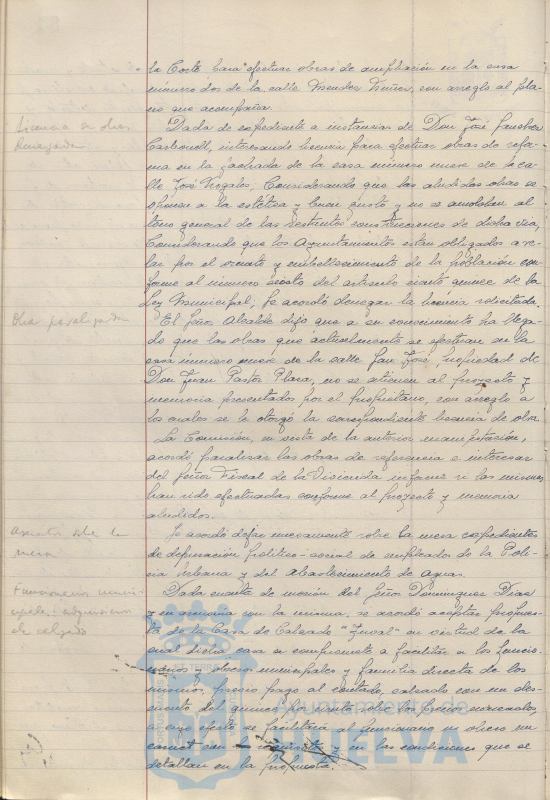 la Corte para efectuar obras de ampliación en la casa
número dos de la calle Mendez Nuñez, con arreglo al pla-
no que acompaña.
Licencia de obras
denegada
Dada de expediente a instancias de Don José Sanchez
Carbonell, interesando licencia para efectuar obras de refor-
ma en la fachada de la casa número nueve de la ca-
lle José Nogales; Considerando que las aludidas obras se
oponen a la estética y buen gusto y no se amoldan al
tono general de las restantes construcciones de dicha vía,
Considerando que los Ayuntamientos están obligados a ve-
lar por el ornato y embellecimiento de la población con-
forme al número sexto del artículo ciento quince de la
Ley Municipal, se acordó denegar la licencia solicitada.
Obra paralizada
El Señor Alcalde dijo que a su conocimiento ha llega-
do que las obras que actualmente se efectuan en la
casa número nueve de la calle San José, propiedad de
Don Juan Pastor Plaza, no se atienen al proyecto y
memoria presentados por el propietario, con arreglo a
los cuales se le otorgó la correspondiente licencia de obra.
La Comisión, en vista de la anterior manifestación,
acordó paralizar las obras de referencia e interesar
del Señor Fiscal de la Vivienda informe si las mismas
han sido efectuadas conforme al proyecto y memoria
aludidos.
Asuntos sobre la
mesa
Se acordó dejar nuevamente sobre la mesa expedientes
de depuración político-social de empleados de la Poli-
cia Urbana y del Abastecimiento de Aguas.
Funcionarios munici-
pales: adquisicion
de calzado
Dada cuenta de moción del Señor Dominguez Diaz
y en armonia con la misma, se acordó aceptar propues-
ta de la Casa de Calzado en virtud de la
cual dicha casa se compromete a facilitar a los funcio-
narios y obreros municipales y familia directa de los
mismos, previo pago al contado, calzado con un des-
cuento del quince por ciento sobre los precios marcados,
a cuyo efecto se facilitará al funcionario u obrero un
carnet y en las condiciones que se
detallan en la propuesta.
Ayuntamiento de
HUELVA